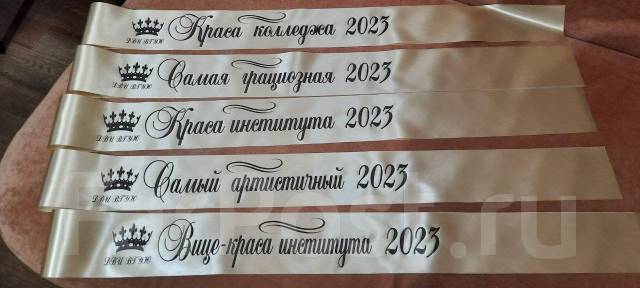 Краса колледжа 2023
ДВИ ВГУЮ
Самая грациозная 2023
ДВИ ВГУЮ
Краса института 2023
ДВИ ВГУЮ
Самый артистичный 2023
ДВИ ВГУЮ
Вице-краса института 2023
ДВИ ВГУЮ